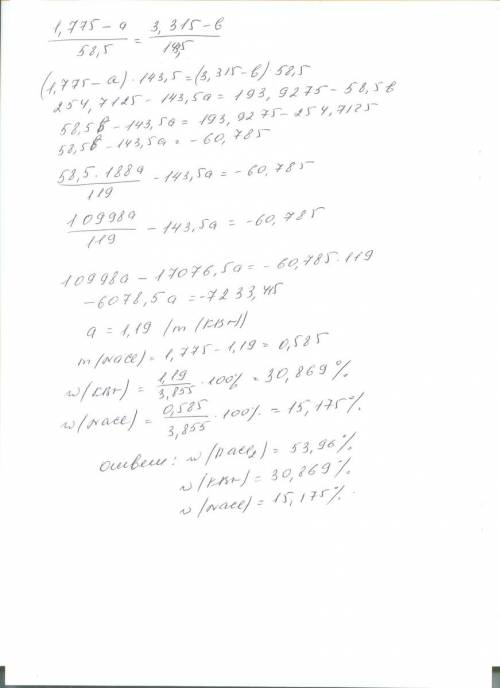 1,775-a / 58,5 = 3,315-в / 143,5
(1,775-a)·143,5=(3,315-в)·58,5
254,7125-143,5a=193,9275-58,5в
58,5в-143,5a=193,9275-254,7125
58,5в-143,5a=-60,785
58,5·188a / 119 -143,5a=-60,785
10998a / 119 -143,5a=-60,785
10998a-17076,5a=-60,785·119
-6078,5a=-7233,415
a=1,19 /m(KBr)/
m(NaCl)=1,775-1,19=0,585
w(KBr)= 1,19 / 3,855 ·100%=30,869%
w(NaCl)= 0,585 / 3,855 ·100%=15,175%.
ответ: w(BaCl2)=53,96%
w(KBr)=30,869%
w(NaCl)=15,175%.